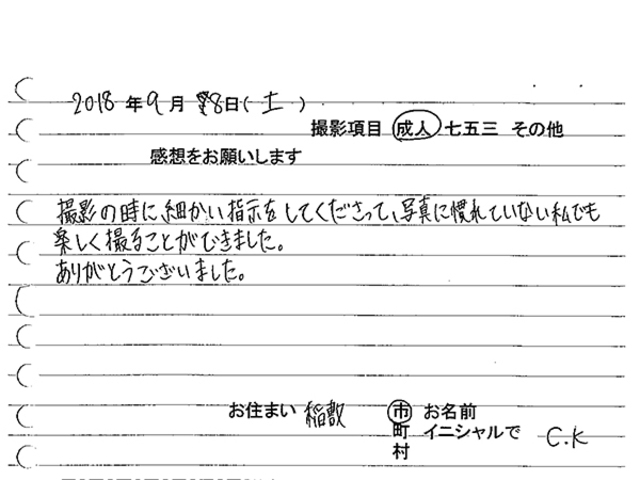 2018年9月8日(土)
撮影項目 成人 七五三 その他
感想をお願いします
撮影の時に細かい指示をしてくださって、写真に慣れていない私でも
楽しく撮ることができました。
ありがとうございました。
お住まい 稲敷 市 お名前
町 イニシャルで C.K
村